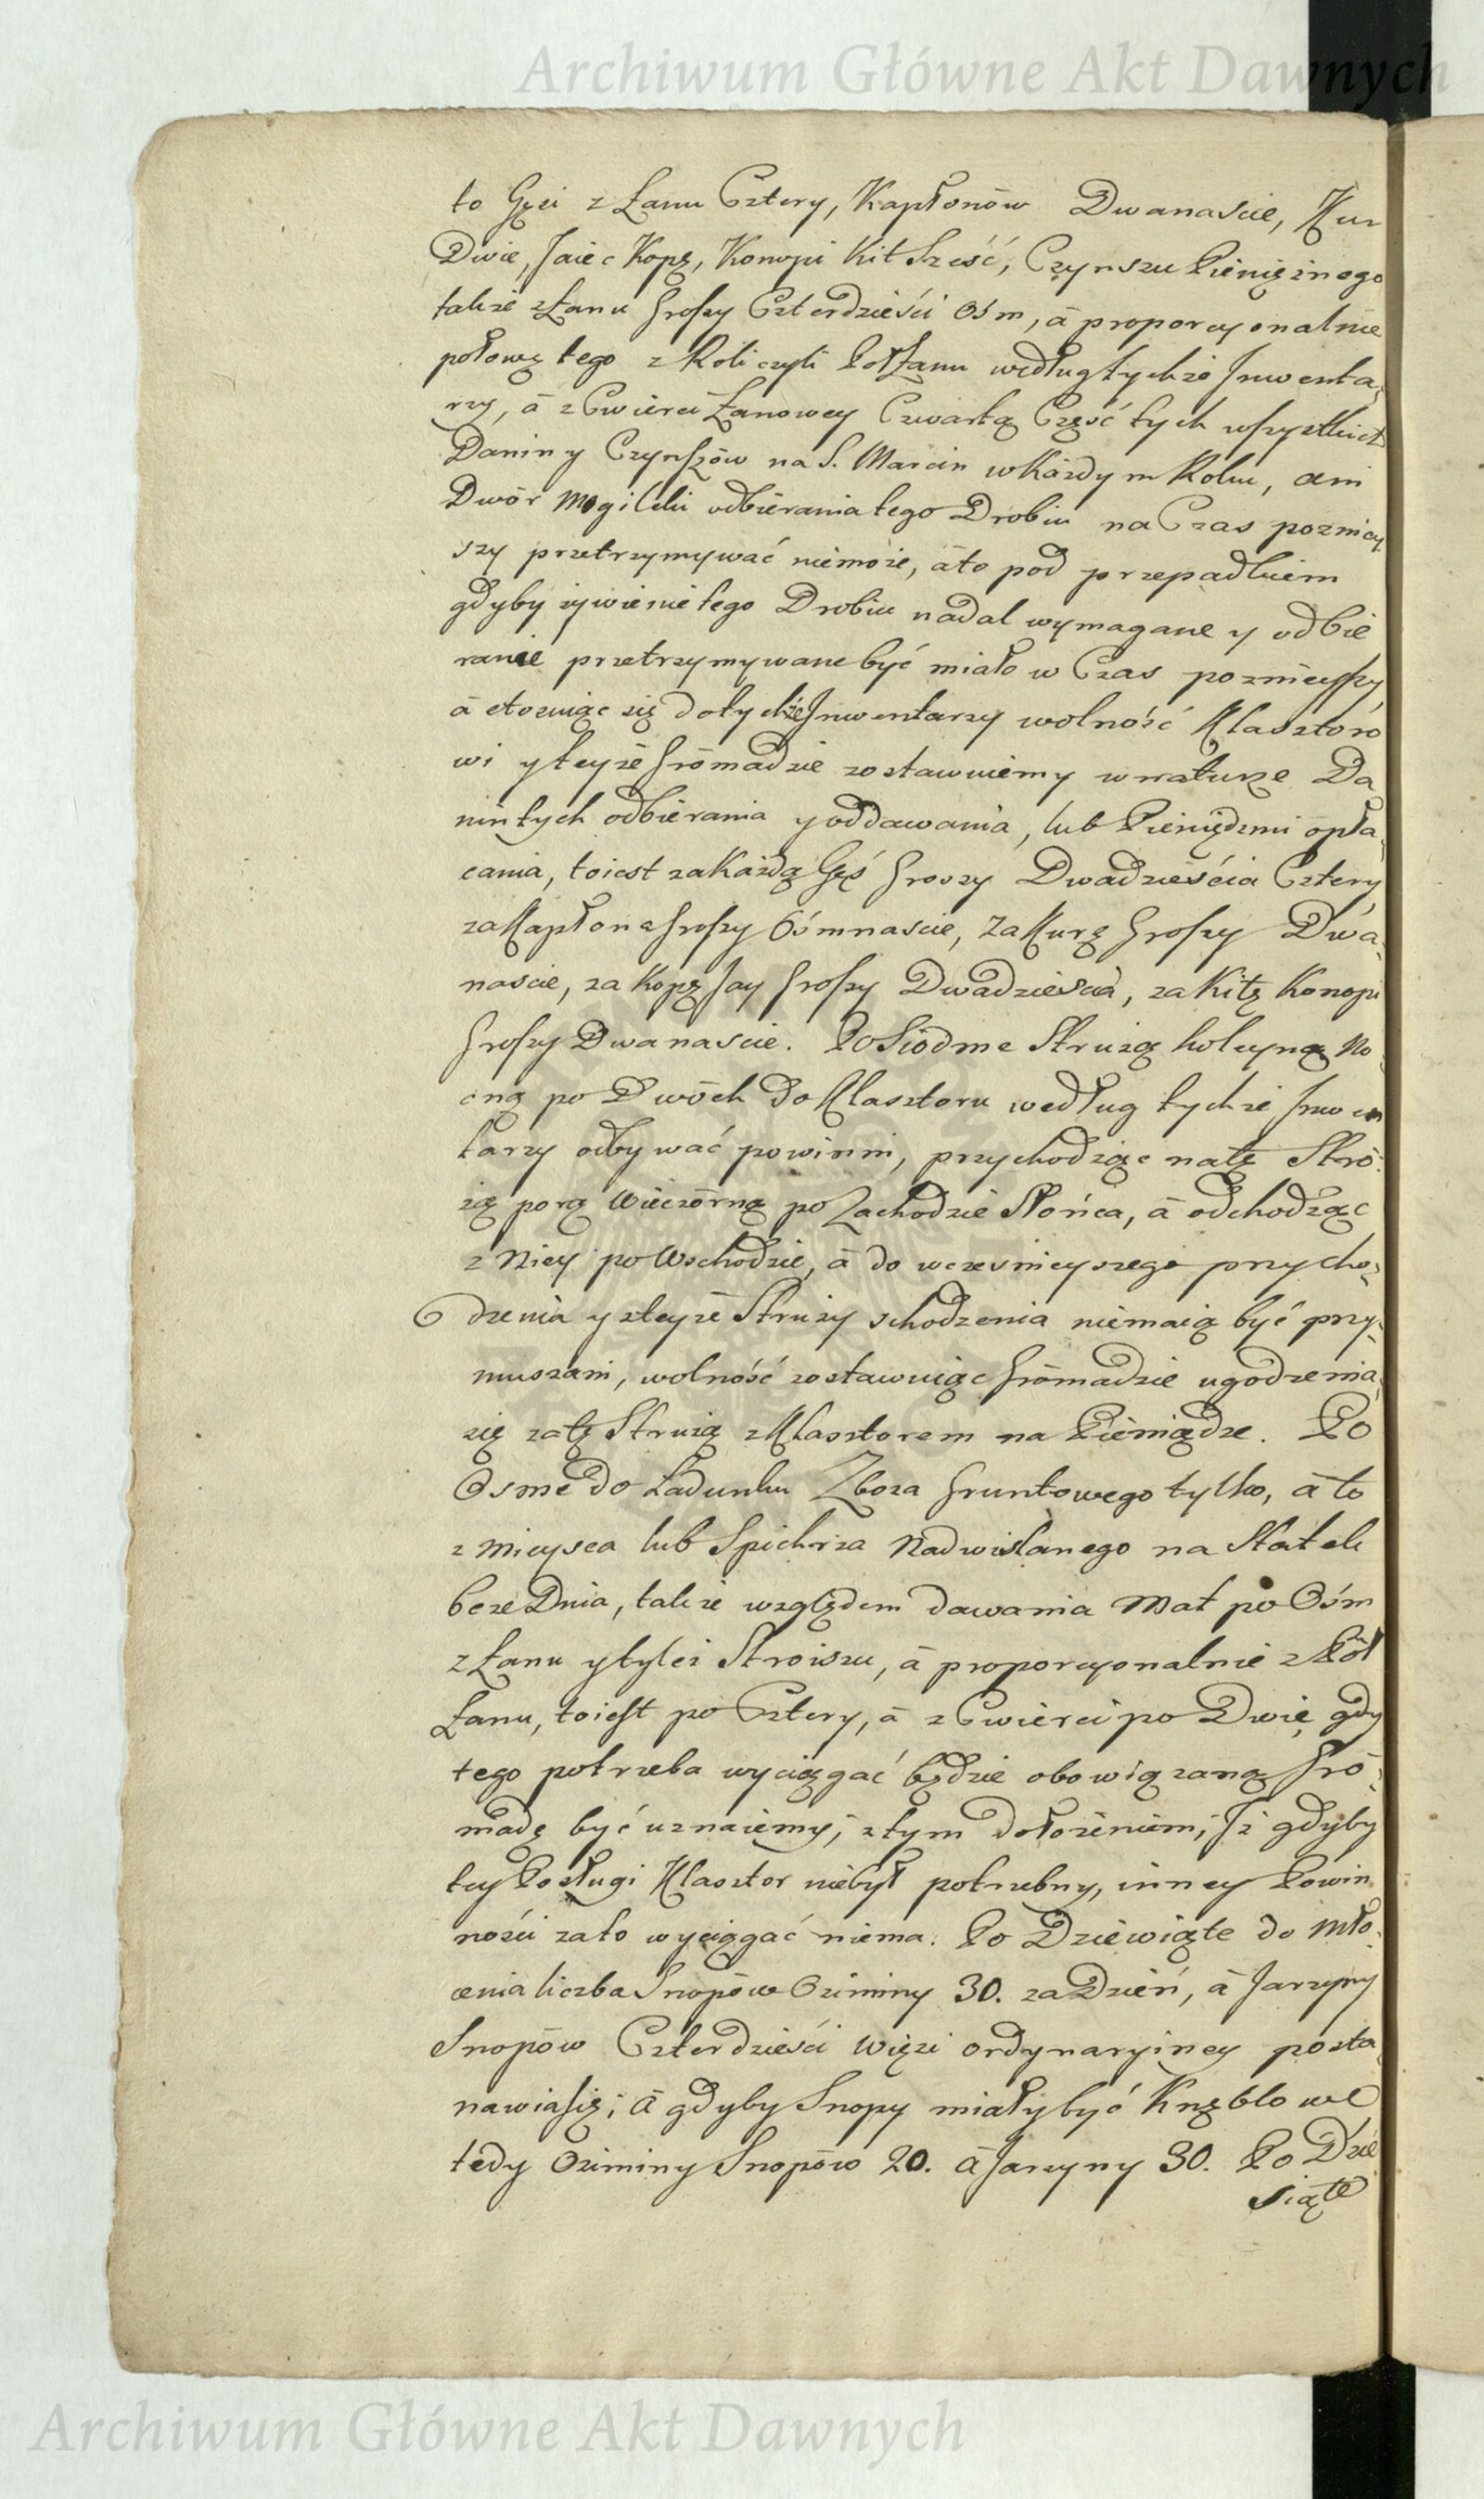 Archiwum Główne Akt Dawnych
to Gęsi z Łanu Cztery, Kapłonów Dwanascie, Kur
Dwie, Jaiec Kopę, Konopi Kit Sześć, Czynszu Pieniężnego
także z Łanu Groszy Czterdzieści Osm, á proporcyonalnie
połowę tego z Roli czyli Poł Łanu według tychże Inwenta„
rzy, á z Cwierci Łanowey Czwartą Część tych wszystkich
Danin y Czynszów na S. Marcin w Każdym Roku, ani
Dwór Mogilski odbierania tego Drobiu na Czas pozniey„
szy przetrzymywać niemoże, áto pod przepadkiem
gdyby żywienie tego Drobiu nadal wymagane y odbie
ranie przetrzymywane być miało w Czas poznieyszy
á stosuiąc się do tychże Inwentarzy wolność Klasztoro
wi y teyże Gromadzie zostawuiemy w naturze Da
nin tych odbierania y oddawania, lub Pieniędzmi opła„
cania, toiest za Każdą Gęś Groszy Dwadzieścia Cztery
za Kapłona Groszy Ośmnascie, Za Kurę Groszy Dwa„
nascie, za Kopę Jay Groszy Dwadzieścia, za Kitę Konopi
Groszy Dwanascie. Po Siódme Strużą koleyną No„
cną po Dwóch do Klasztoru według tychże Inwen
tarzy odbywać powinni, przychodząc na tę Stró„
żą porą Wieczorną po Zachodzie Słońca, á odchodząc
z Niey po Wschodzie, á do wczesnieyszego przycho„
dzenia y z teyże Struży schodzenia niemaią być przy„
muszani, wolność zostawuiąc Gromadzie ugodzenia
się za tę Strużą z Klasztorem na Pieniądze. Po
Osme do Ładunku Zboża Gruntowego tylko, á to
z Mieysca lub Spichrza Nadwislanego na Statek
beze Dnia, także względem dawania Mat po Ośm
z Łanu y tyleż Stroiszu, á proporcyonalnie z Pół
Łanu, toiest po Cztery, á z Cwierci po Dwie, gdy
tego potrzeba wyciągać będzie obowiązaną Gro„
madę być uznaiemy; z tym dołożeniem; Iż gdyby
tey Posługi Klasztor niebył potrzebny, inney Powin
ności zato wyciągać niema. Po Dziewiąte do Mło„
cenia liczba Snopów Oziminy 30. za Dzień, á Jarzyny
Snopów Czterdzieści Więzi ordynaryiney posta„
nawia się; á gdyby Snopy miały być Knęblowe
tedy Oziminy Snopów 20. á Jarzyny 30. Po Dzie
siąte
Archiwum Główne Akt Dawnych